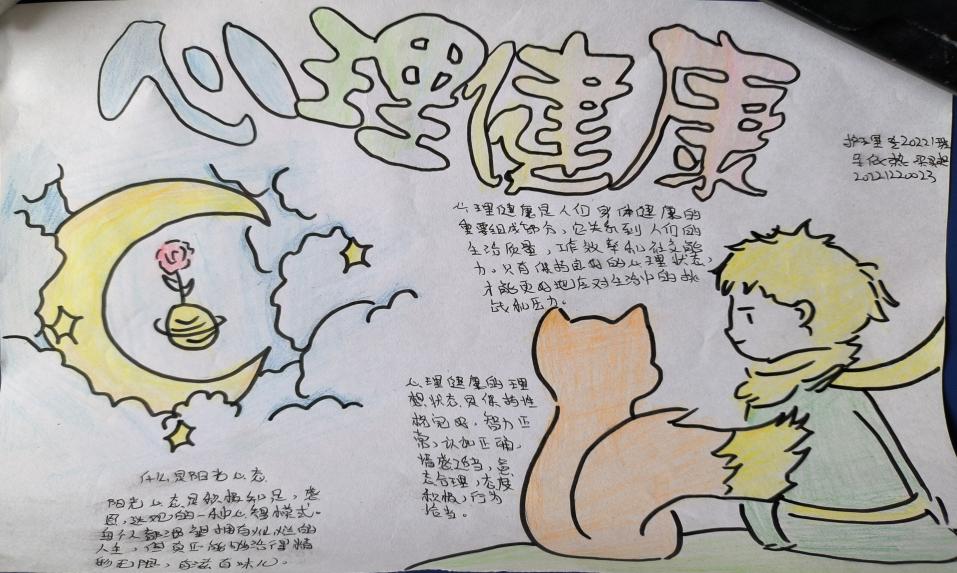 心理健康
护理学20221班
20221220023
心理健康是人们身体健康的
重要组成部分，它关系到人们的
生活质量，工作效率和社交能
力。只有保持良好的心理状态，
才能更好地应对生活中的挑
战和压力。
心理健康的理
想状态是保持性
格完好，智力正
常，认知正确，
情感适当，意
志合理，态度
积极，行为
恰当。
什么是阳光心态
阳光心态是积极知足，感
恩，达观的一种心智模式。
每个人都渴望拥有灿烂的
人生，